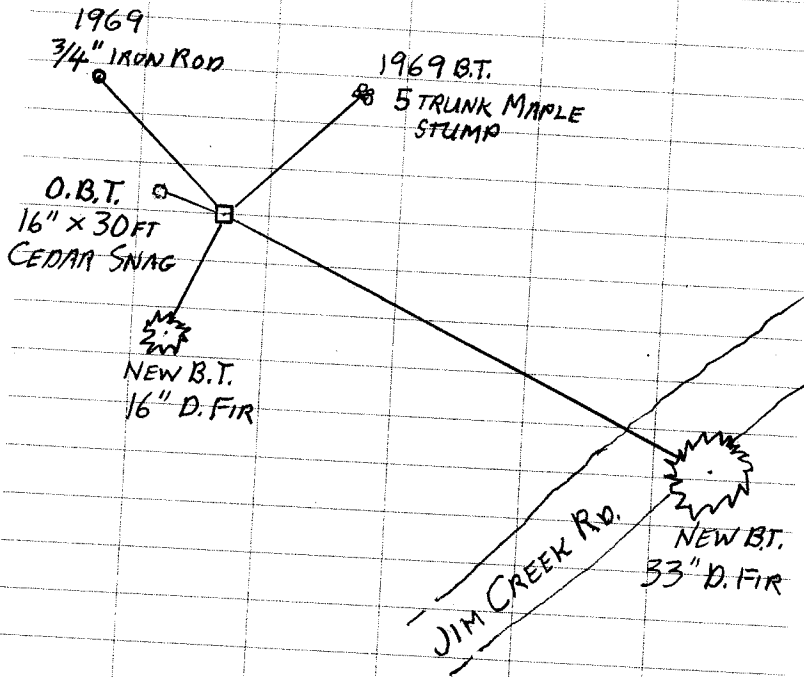 1969
3/4" IRON ROD
1969 B.T.
5 TRUNK MAPLE
STUMP
O.B.T.
16" X 30 FT
CEDAR SNAG
NEW B.T.
16" D. FIR
JIM CREEK RD.
NEW B.T.
33" D. FIR